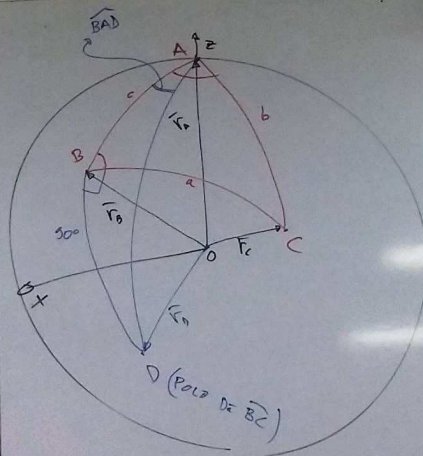 BAD
A
Z
c
b
r̄A
B
a
r̄B
90°
O
r̄C
C
X
r̄D
D (POLO DE BC)